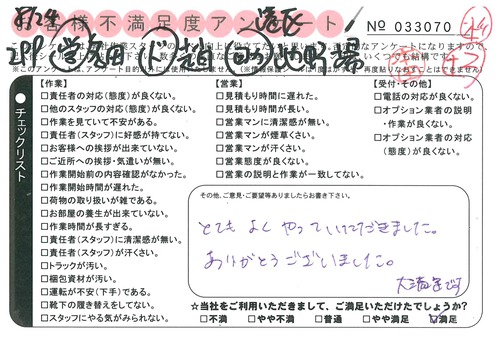 お客様不満足度アンケート
No 033070
チェックリスト
【作業】
□責任者の対応(態度)が良くない。
□他のスタッフの対応(態度)が良くない。
□作業を見ていて不安がある。
□責任者(スタッフ)に好感が持てない。
□お客様への挨拶が出来ていない。
□ご近所への挨拶・気遣いが無い。
□作業開始前の内容確認がなかった。
□作業開始時間が遅れた。
□荷物の取り扱いが雑である。
□お部屋の養生が出来ていない。
□作業時間が長すぎる。
□責任者(スタッフ)に清潔感が無い。
□責任者(スタッフ)が汗くさい。
□トラックが汚い。
□梱包資材が汚い。
□運転が不安(下手)である。
□靴下の履き替えをしてない。
□スタッフにやる気がみられない。
【営業】
□見積もり時間に遅れた。
□見積もり時間が長い。
□営業マンに清潔感が無い。
□営業マンが煙草くさい。
□営業マンが汗くさい。
□営業態度が良くない。
□営業の説明と作業が一致してない。
【受付・その他】
□電話の対応が良くない。
□オプション業者の説明・作業が良くない。
□オプション業者の対応(態度)が良くない。
その他、ご意見・ご要望等ありましたらお書き下さい。
とてもよくやっていただきました。
ありがとうございました。
大満足です
☆当社をご利用いただきまして、ご満足いただけたでしょうか?
□不満 □やや不満 □普通 □やや満足 ☑満足